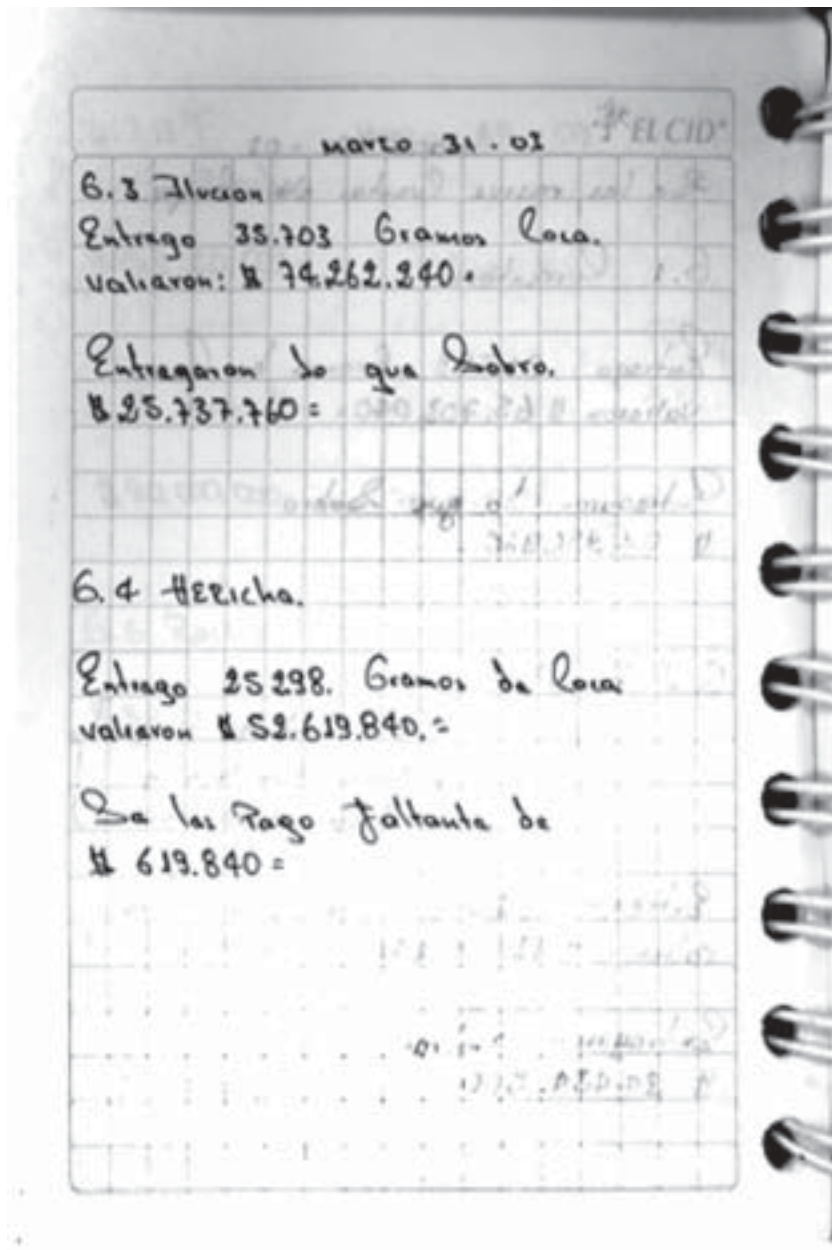 EL CID
Marzo 31 . 02
6.3 Ilucion
Entrego 35.703 Gramos Coca.
valiaron: $ 74.262.240.
Entregaron lo que Sobro.
$ 25.737.760 =
6.4 HERicha.
Entrego 25298. Gramos de Coca
valiaron $ 52.619.840. =
Se les Pago Faltante de
$ 619.840 =